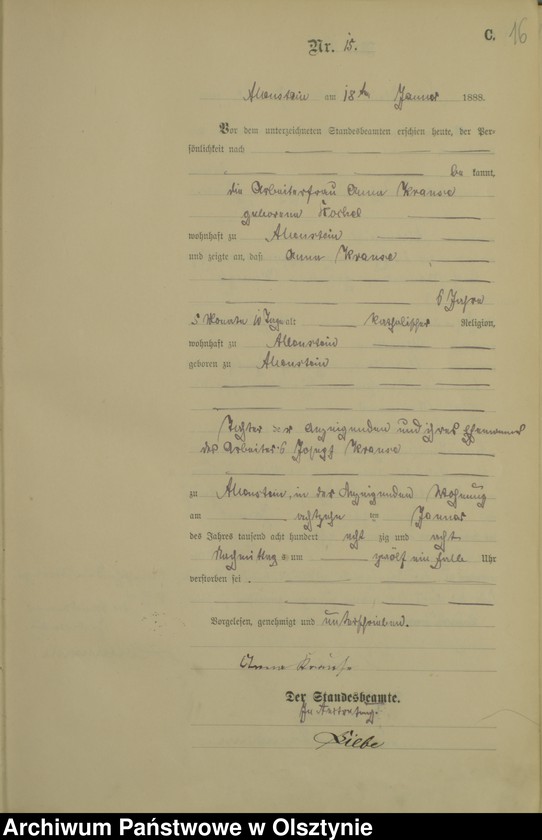 C. 16
Nr. 15.
Allenstein am 18ten Januar 1888.
Vor dem unterzeichneten Standesbeamten erschien heute, der Per-
sönlichkeit nach
be kannt,
die Arbeiterfrau Anna Krause
geborene
wohnhaft zu Allenstein
und zeigte an, daß Anna Krause
6 Jahre
5 Monate 10 Tage alt katholischer Religion,
wohnhaft zu Allenstein
geboren zu Allenstein
Tochter der Anzeigenden und ihres Ehemannes
des Arbeiters Joseph Krause
zu Allenstein, in der Anzeigenden Wohnung
am achtzehn ten Januar
des Jahres tausend acht hundert acht zig und acht
Nachmittags um zwölf ein halb Uhr
verstorben sei.
Vorgelesen, genehmigt und unterschrieben.
Anna Krause
Der Standesbeamte.
In Vertretung.
Archiwum Państwowe w Olsztynie